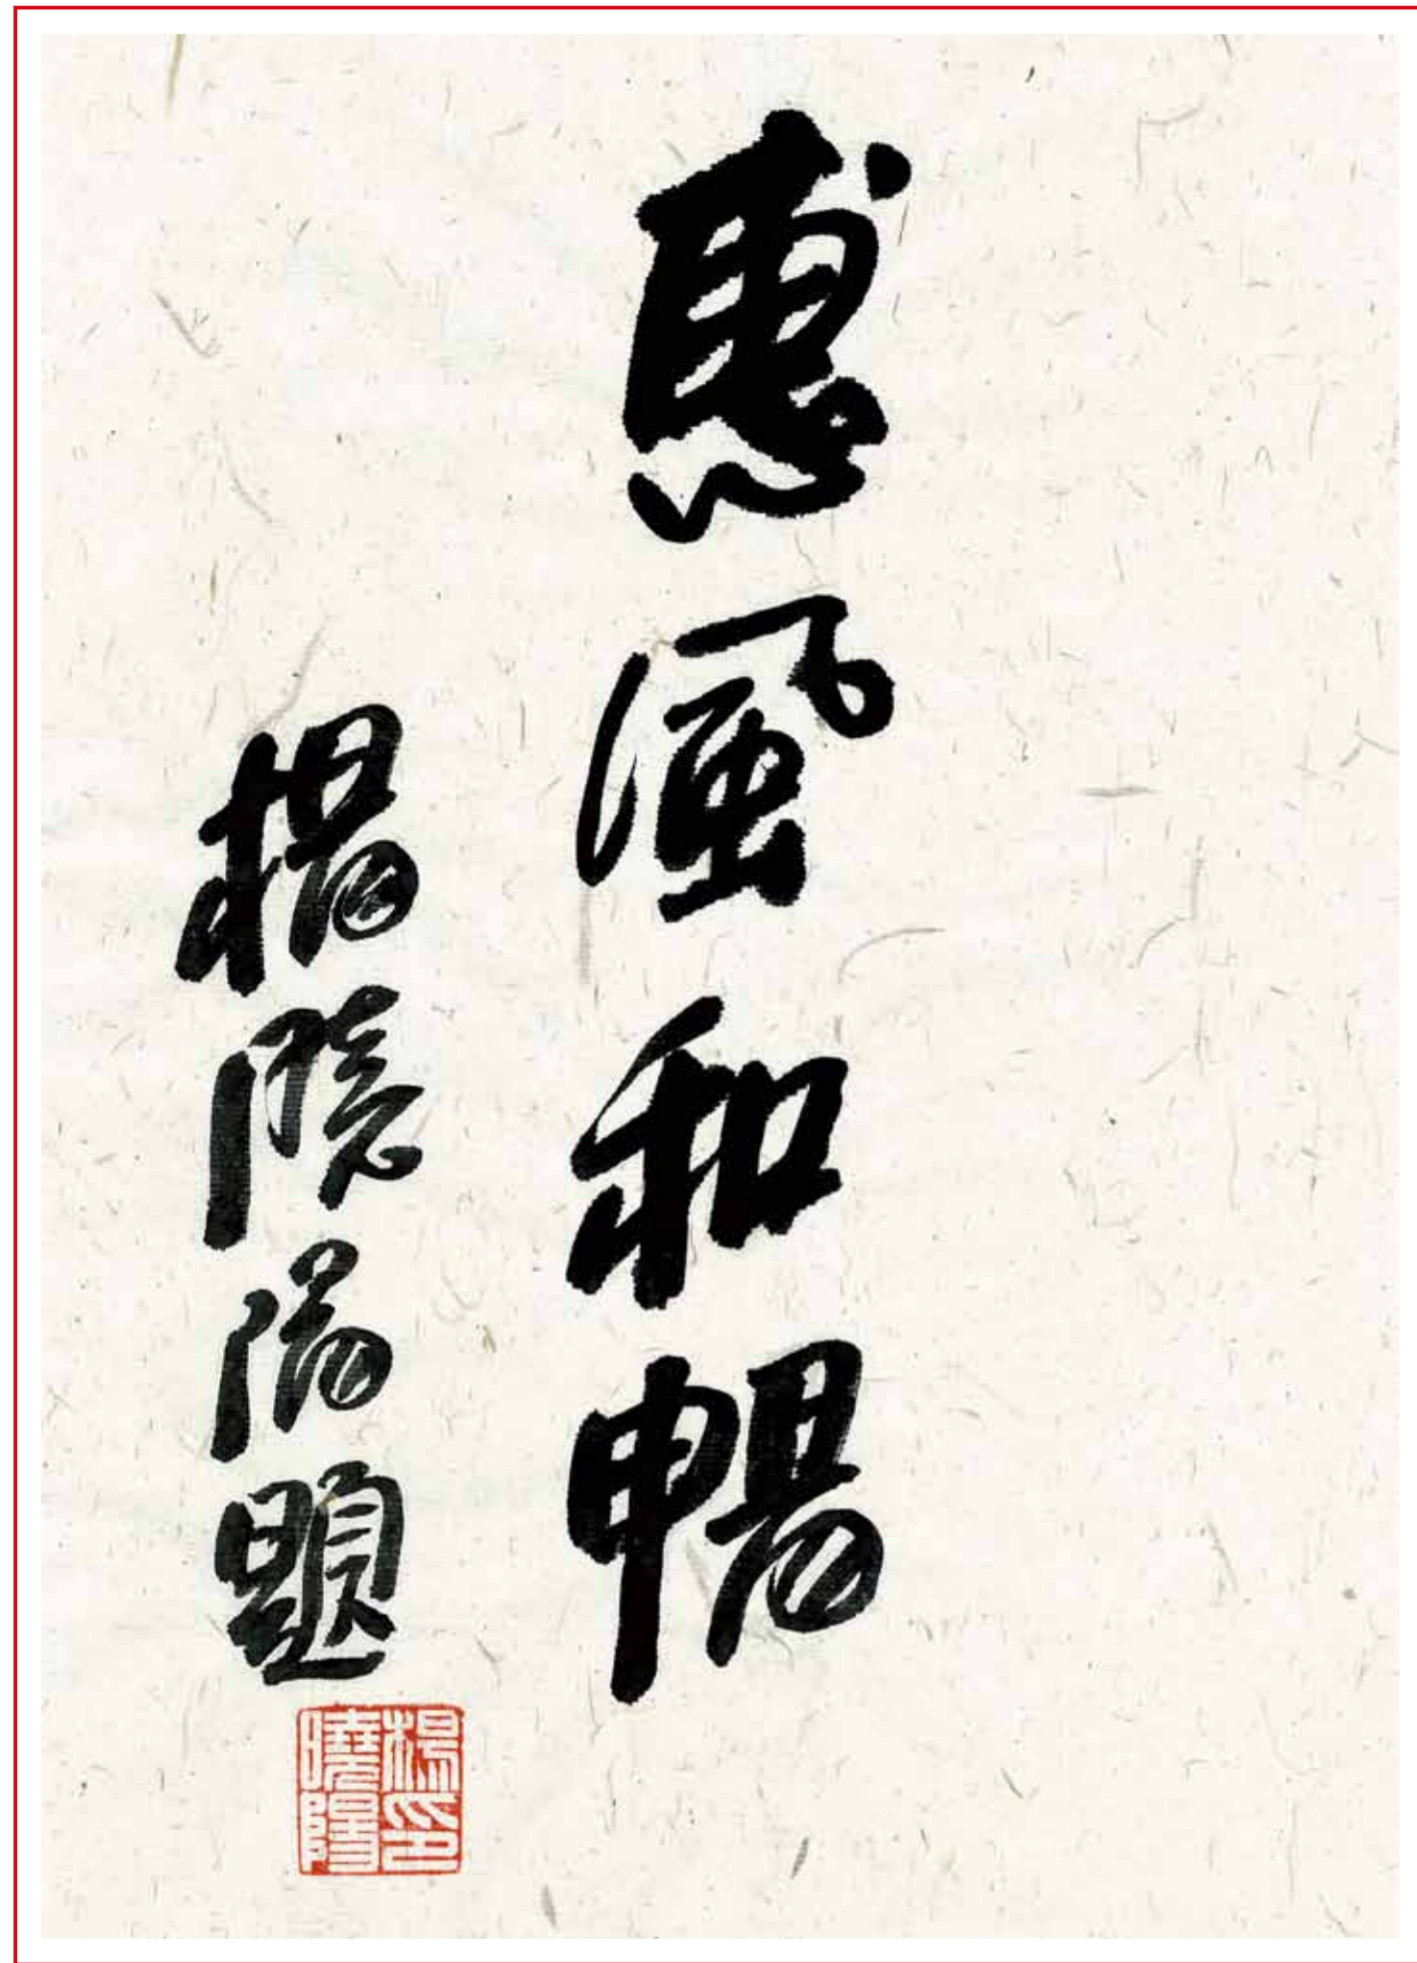 惠風和暢
楊曉陽題
楊印
曉陽